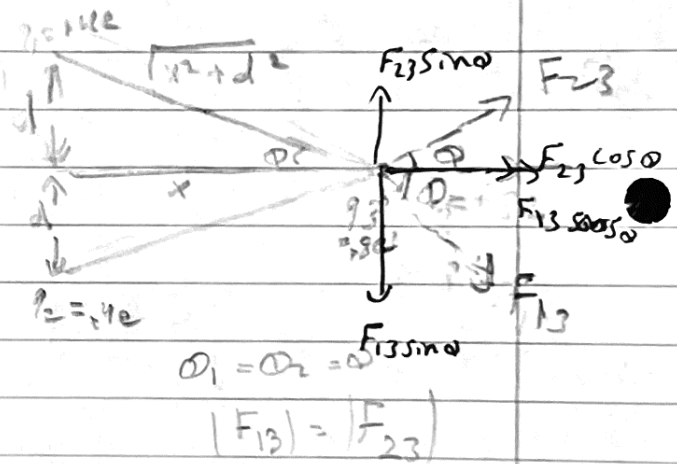 q₁=+4e
√x²+d²
F₂₃ sinθ
F₂₃
d
θ
θ
F₂₃ cosθ
x
d
q₃
F₁₃ cosθ
q₂=+4e
F₁₃
F₁₃ sinθ
θ₁ = θ₂ = θ
|F₁₃| = |F₂₃|